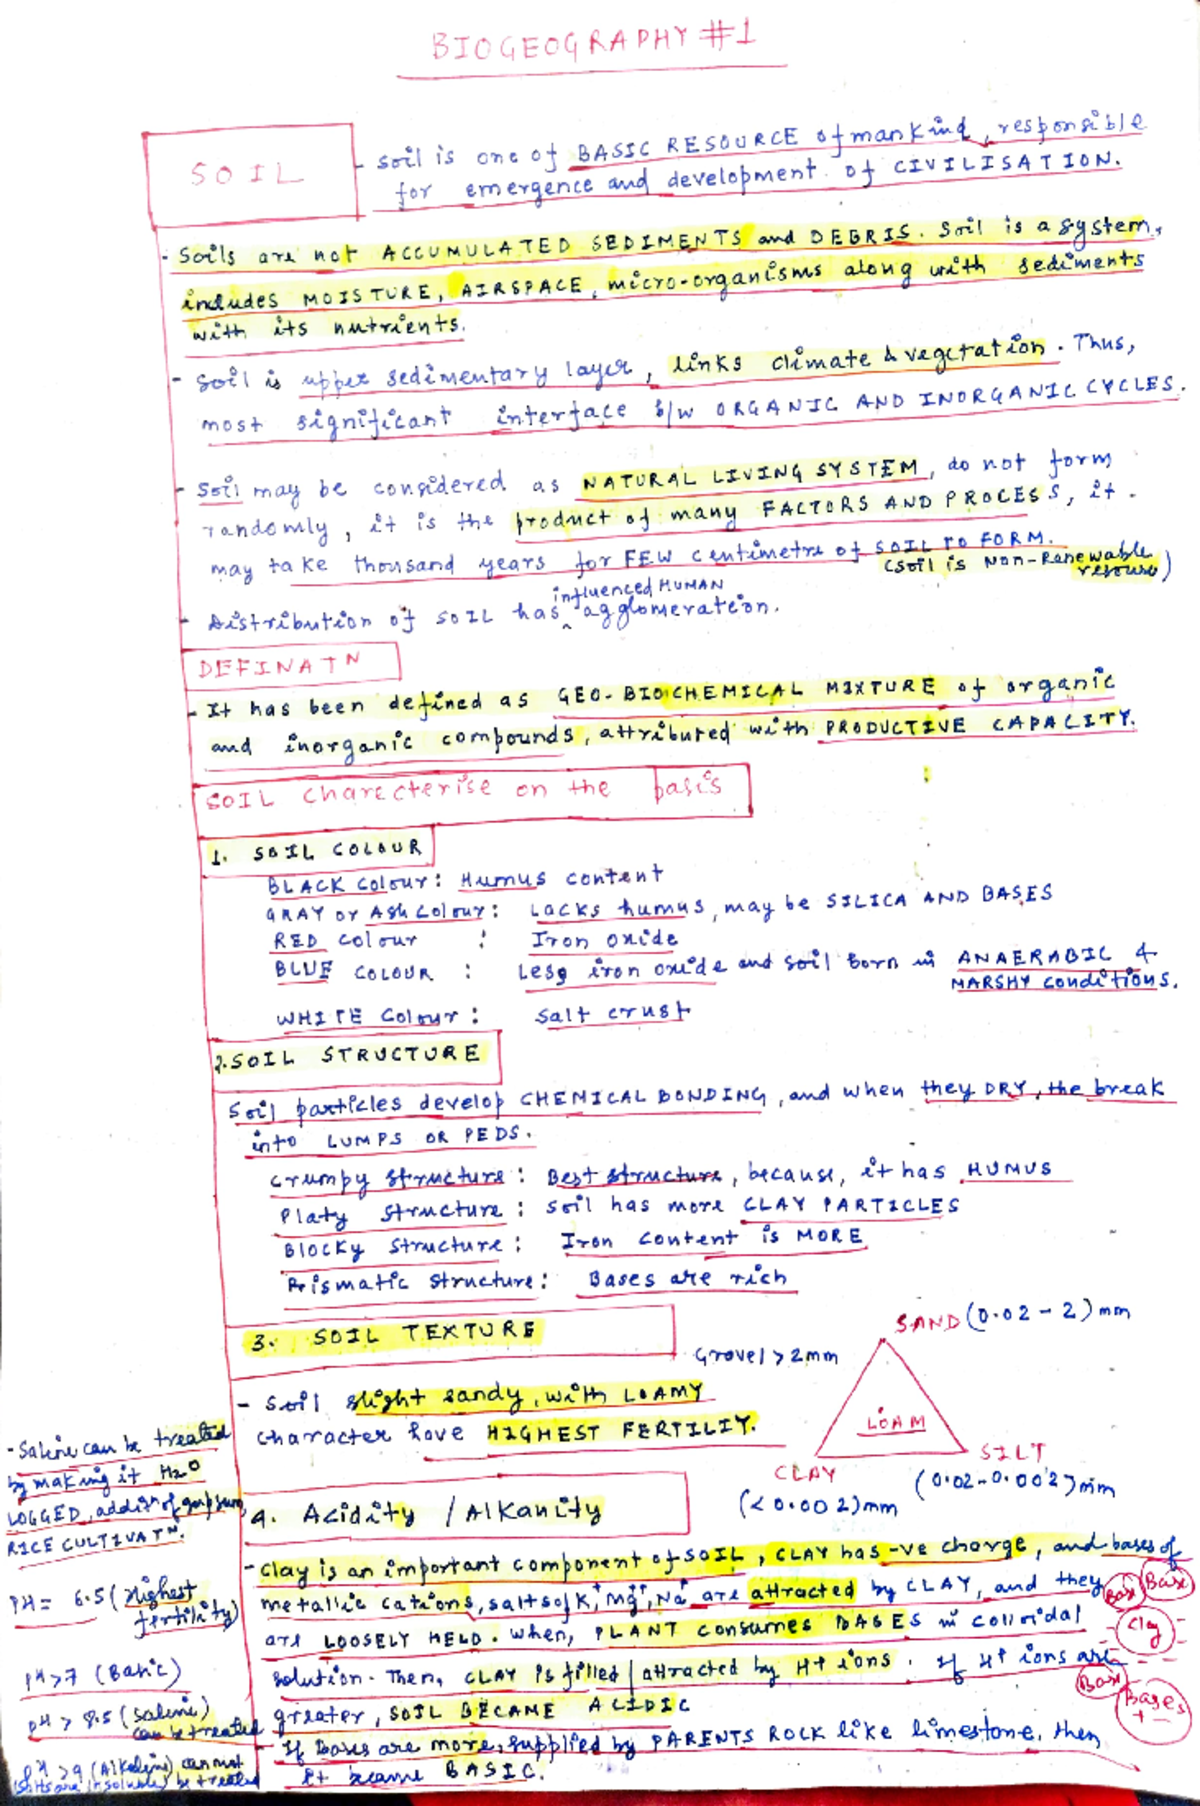 BIOGEOGRAPHY #1
SOIL
- Soil is one of BASIC RESOURCE of mankind, responsible
for emergence and development of CIVILISATION.
- Soils are not ACCUMULATED SEDIMENTS and DEBRIS. Soil is a system,
includes MOISTURE, AIRSPACE, micro-organisms along with sediments
with its nutrients.
- Soil is upper sedimentary layer, links climate & vegetation. Thus,
most significant interface b/w ORGANIC AND INORGANIC CYCLES.
- Soil may be considered as NATURAL LIVING SYSTEM, do not form
randomly, it is the product of many FACTORS AND PROCESS, it
may take thousand years for FEW centimetre of SOIL TO FORM.
(Soil is Non-Renewable
resource)
influenced HUMAN
- Distribution of SOIL has ^ agglomeration.
DEFINATN
- It has been defined as GEO-BIOCHEMICAL MIXTURE of organic
and inorganic compounds, attributed with PRODUCTIVE CAPACITY.
SOIL charecterise on the basis
1. SOIL COLOUR
BLACK colour: Humus content
GRAY or Ash colour: Lacks humus, may be SILICA AND BASES
RED colour : Iron oxide
BLUE COLOUR : Less iron oxide and soil born in ANAERABIC &
MARSHY conditions.
WHITE colour: salt crust
2. SOIL STRUCTURE
Soil particles develop CHEMICAL BONDING, and when they DRY, the break
into LUMPS OR PEDS.
Crumpy structure: Best structure, because, it has HUMUS
Platy structure: soil has more CLAY PARTICLES
Blocky structure: Iron content is MORE
Prismatic structure: Bases are rich
3. SOIL TEXTURE
SAND (0.02 - 2) mm
Gravel > 2mm
LOAM
CLAY
(<0.002) mm
SILT
(0.02-0.002) mm
- Soil slight sandy, with LOAMY
character have HIGHEST FERTILIY.
- Saline can be treated
by making it H2O
LOGGED, additn of gypsum,
RICE CULTIVATn.
PH = 6.5 (Highest
fertility)
PH>7 (Basic)
PH > 8.5 (Saline)
can be treated
PH >9 (Alkaline), cannot
(salts are insoluble) be treated
4. Acidity / Alkanity
- Clay is an important component of SOIL, CLAY has -ve charge, and bases of
metallic cations, salts of K+, Mg++, Na+ are attracted by CLAY, and they
are LOOSELY HELD. When, PLANT consumes BASES in colloidal
solution. Then, CLAY is filled / attracted by H+ ions. If H+ ions are
greater, SOIL BECAME ACIDIC
- If Bases are more, supplied by PARENTS ROCK like limestone, then
it became BASIC.
Base
Base
Clay
Base
Bases
+ -